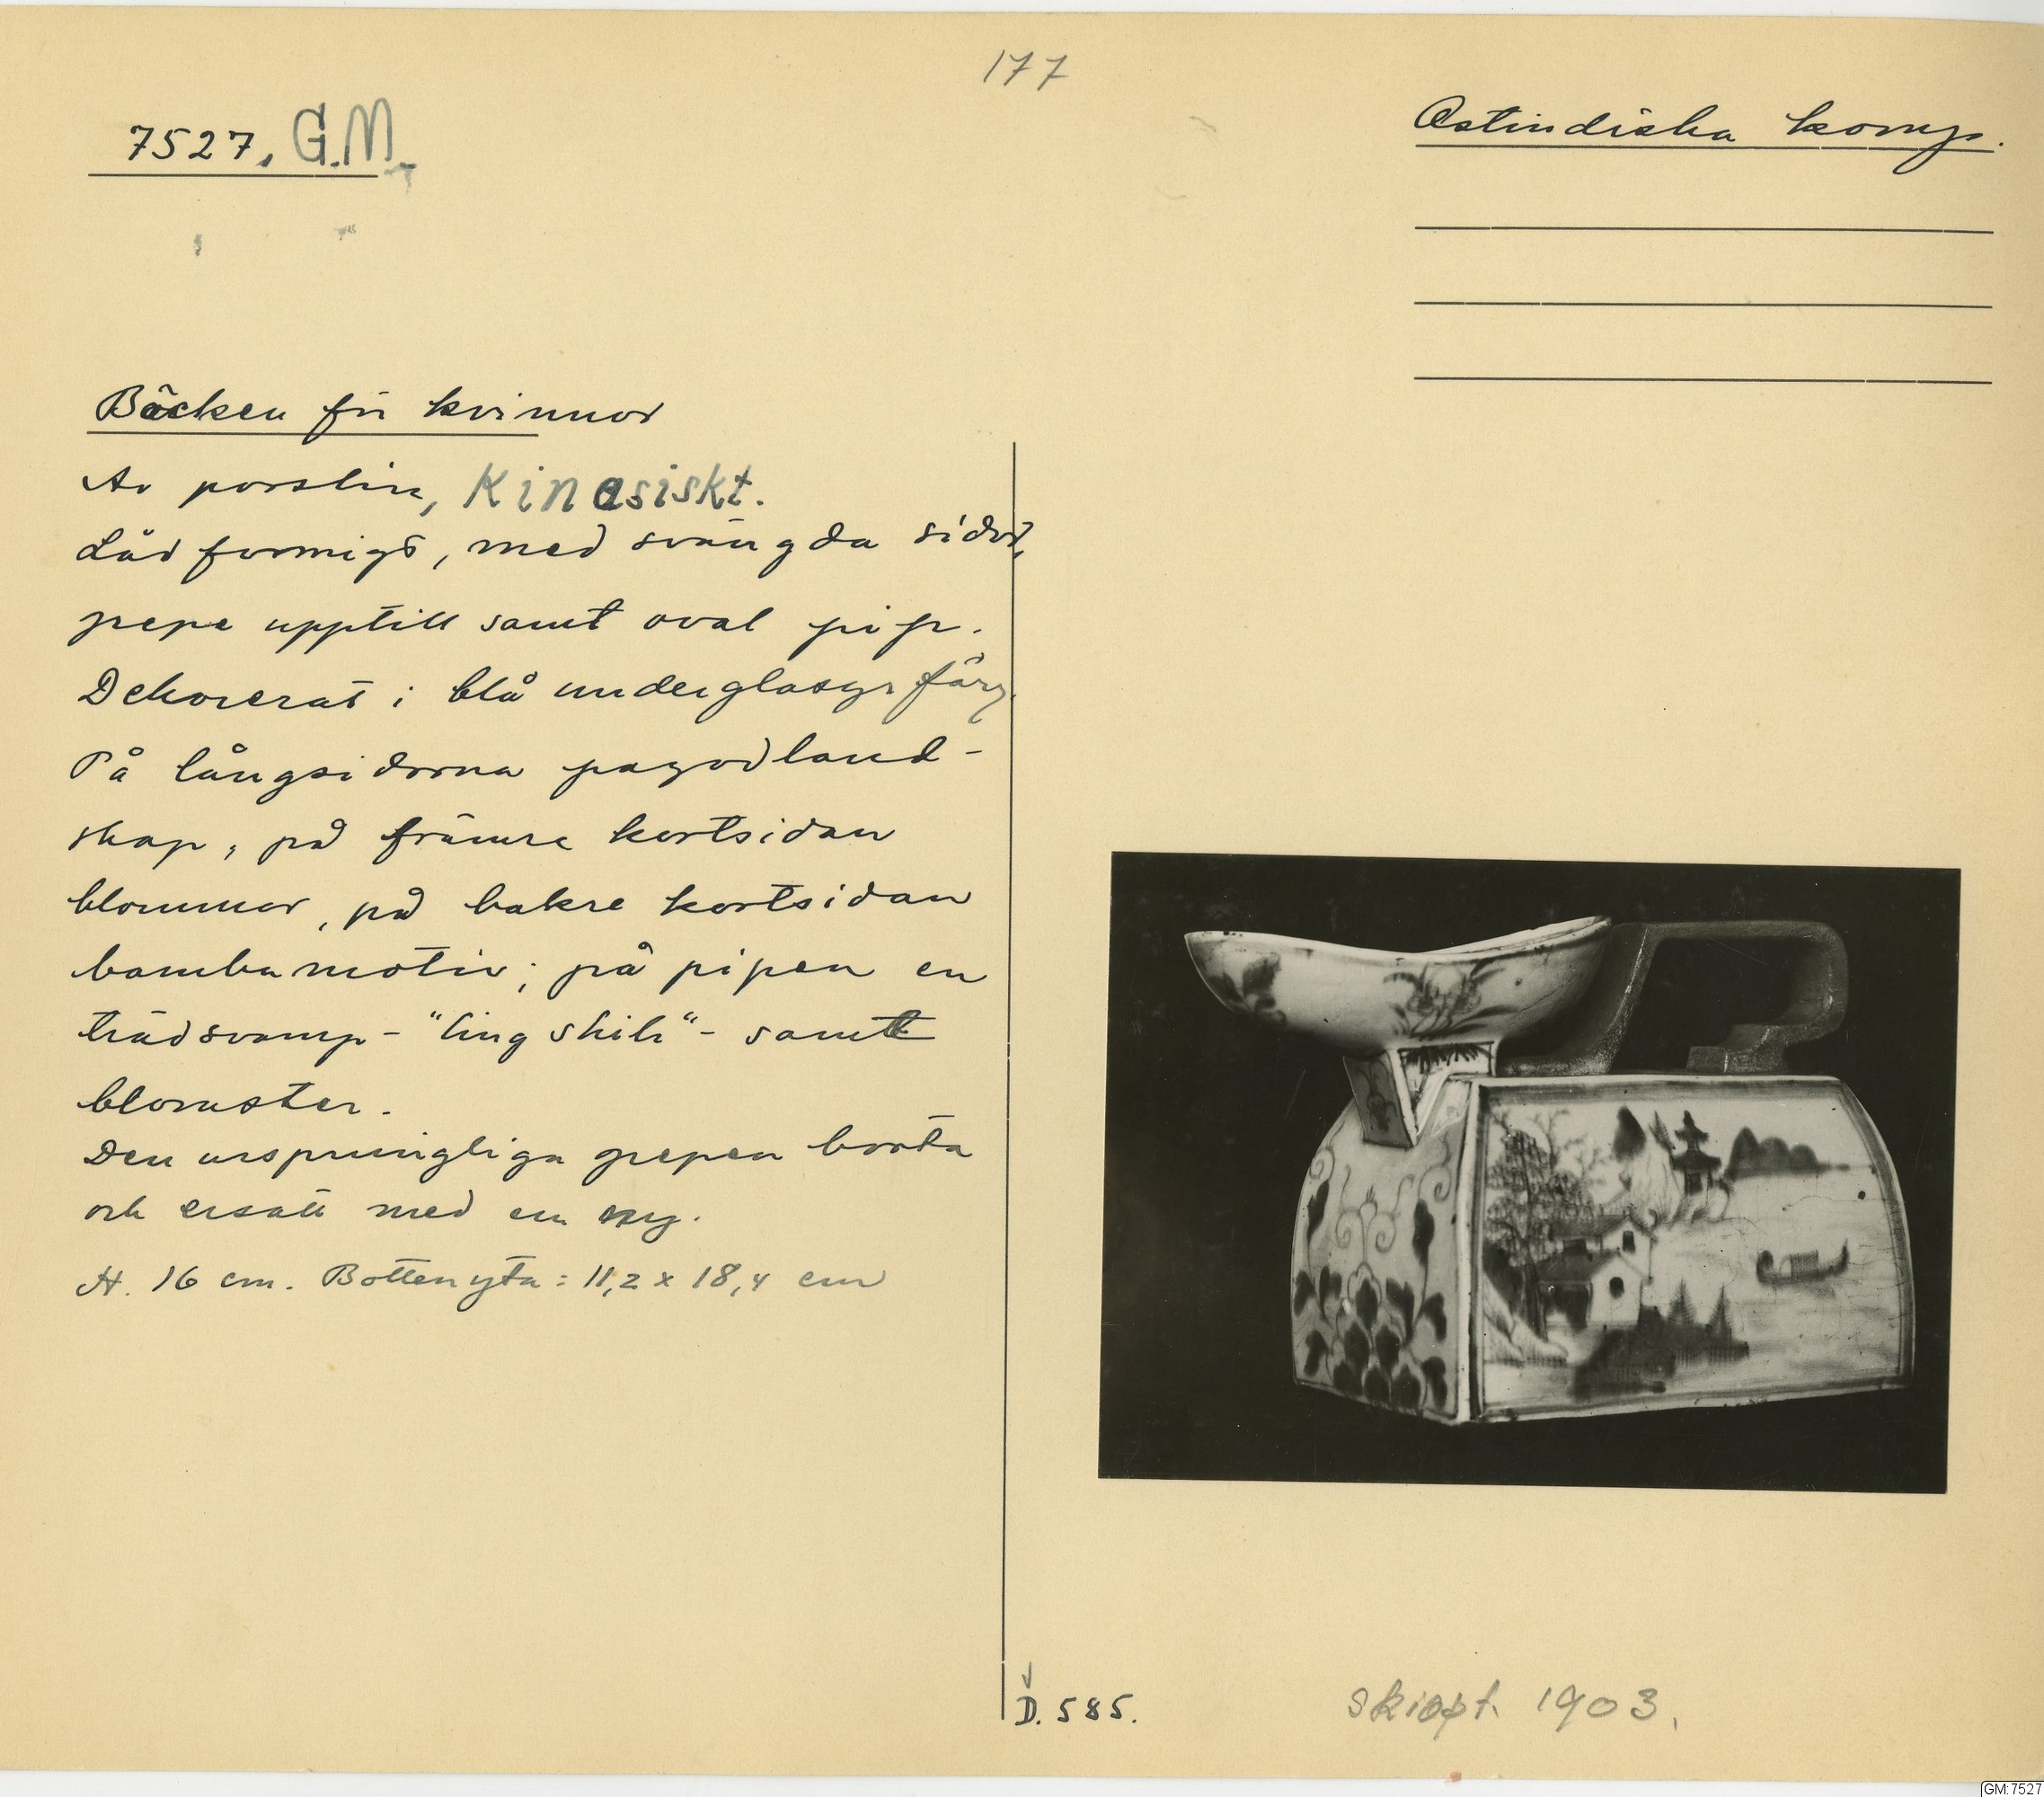 177
7527. G.M.
Ostindiska komp.
Bäcken för kvinnor
Av porslin, Kinesiskt.
Lådformigt, med svängda sidor,
grepe upptill samt oval pip.
Dekorerat i blå underglasyrfärg.
På långsidorna pagodland-
skap, på främre kortsidan
blommor, på bakre kortsidan
bambumotiv; på pipen en
trädsvamp - "ling shih" - samt
blomster.
Den ursprungliga grepen borta
och ersatt med en ny.
H. 16 cm. Bottenyta: 11,2 x 18,4 cm
D. 585.
skiopt. 1903.
GM:7527